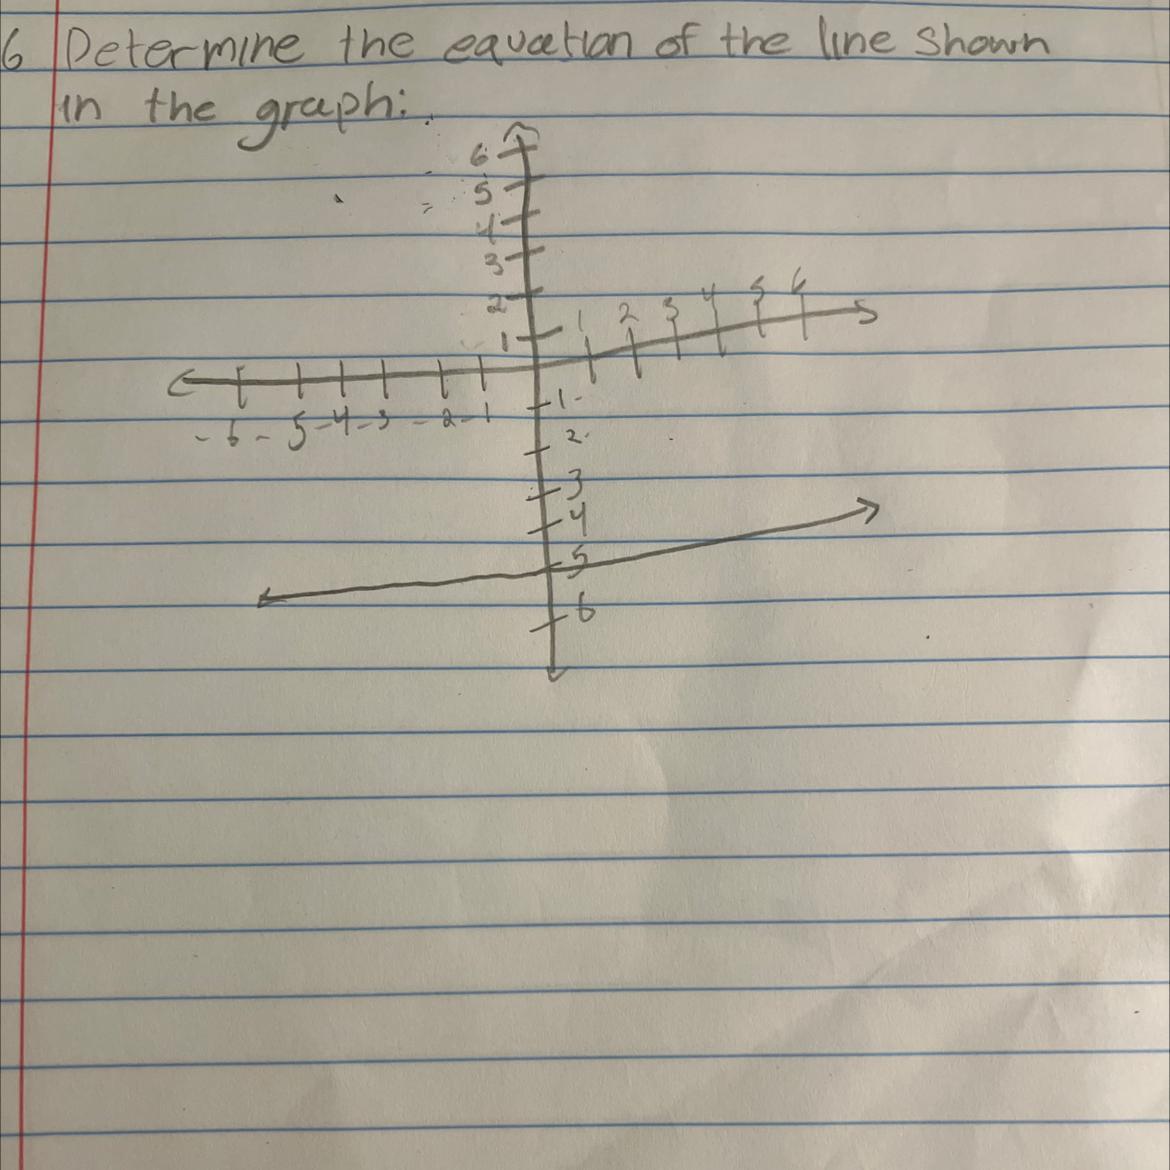 6 Determine the equation of the line shown
in the graph:
6
5
4
3
2
1
1 2 3 4 5 6
-6 -5 -4 -3 -2 -1
1-
2
3
4
5
6